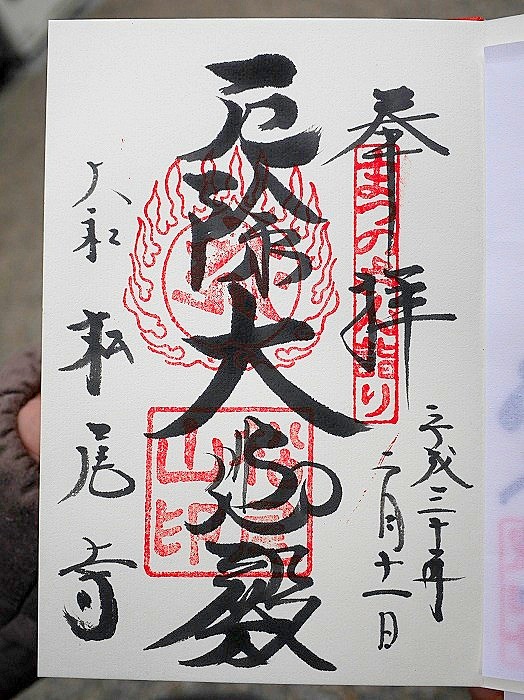 奉拝
平成三十年
二月十一日
厄除大悲殿
大和 松尾寺
まつの
詣り
松尾
山印